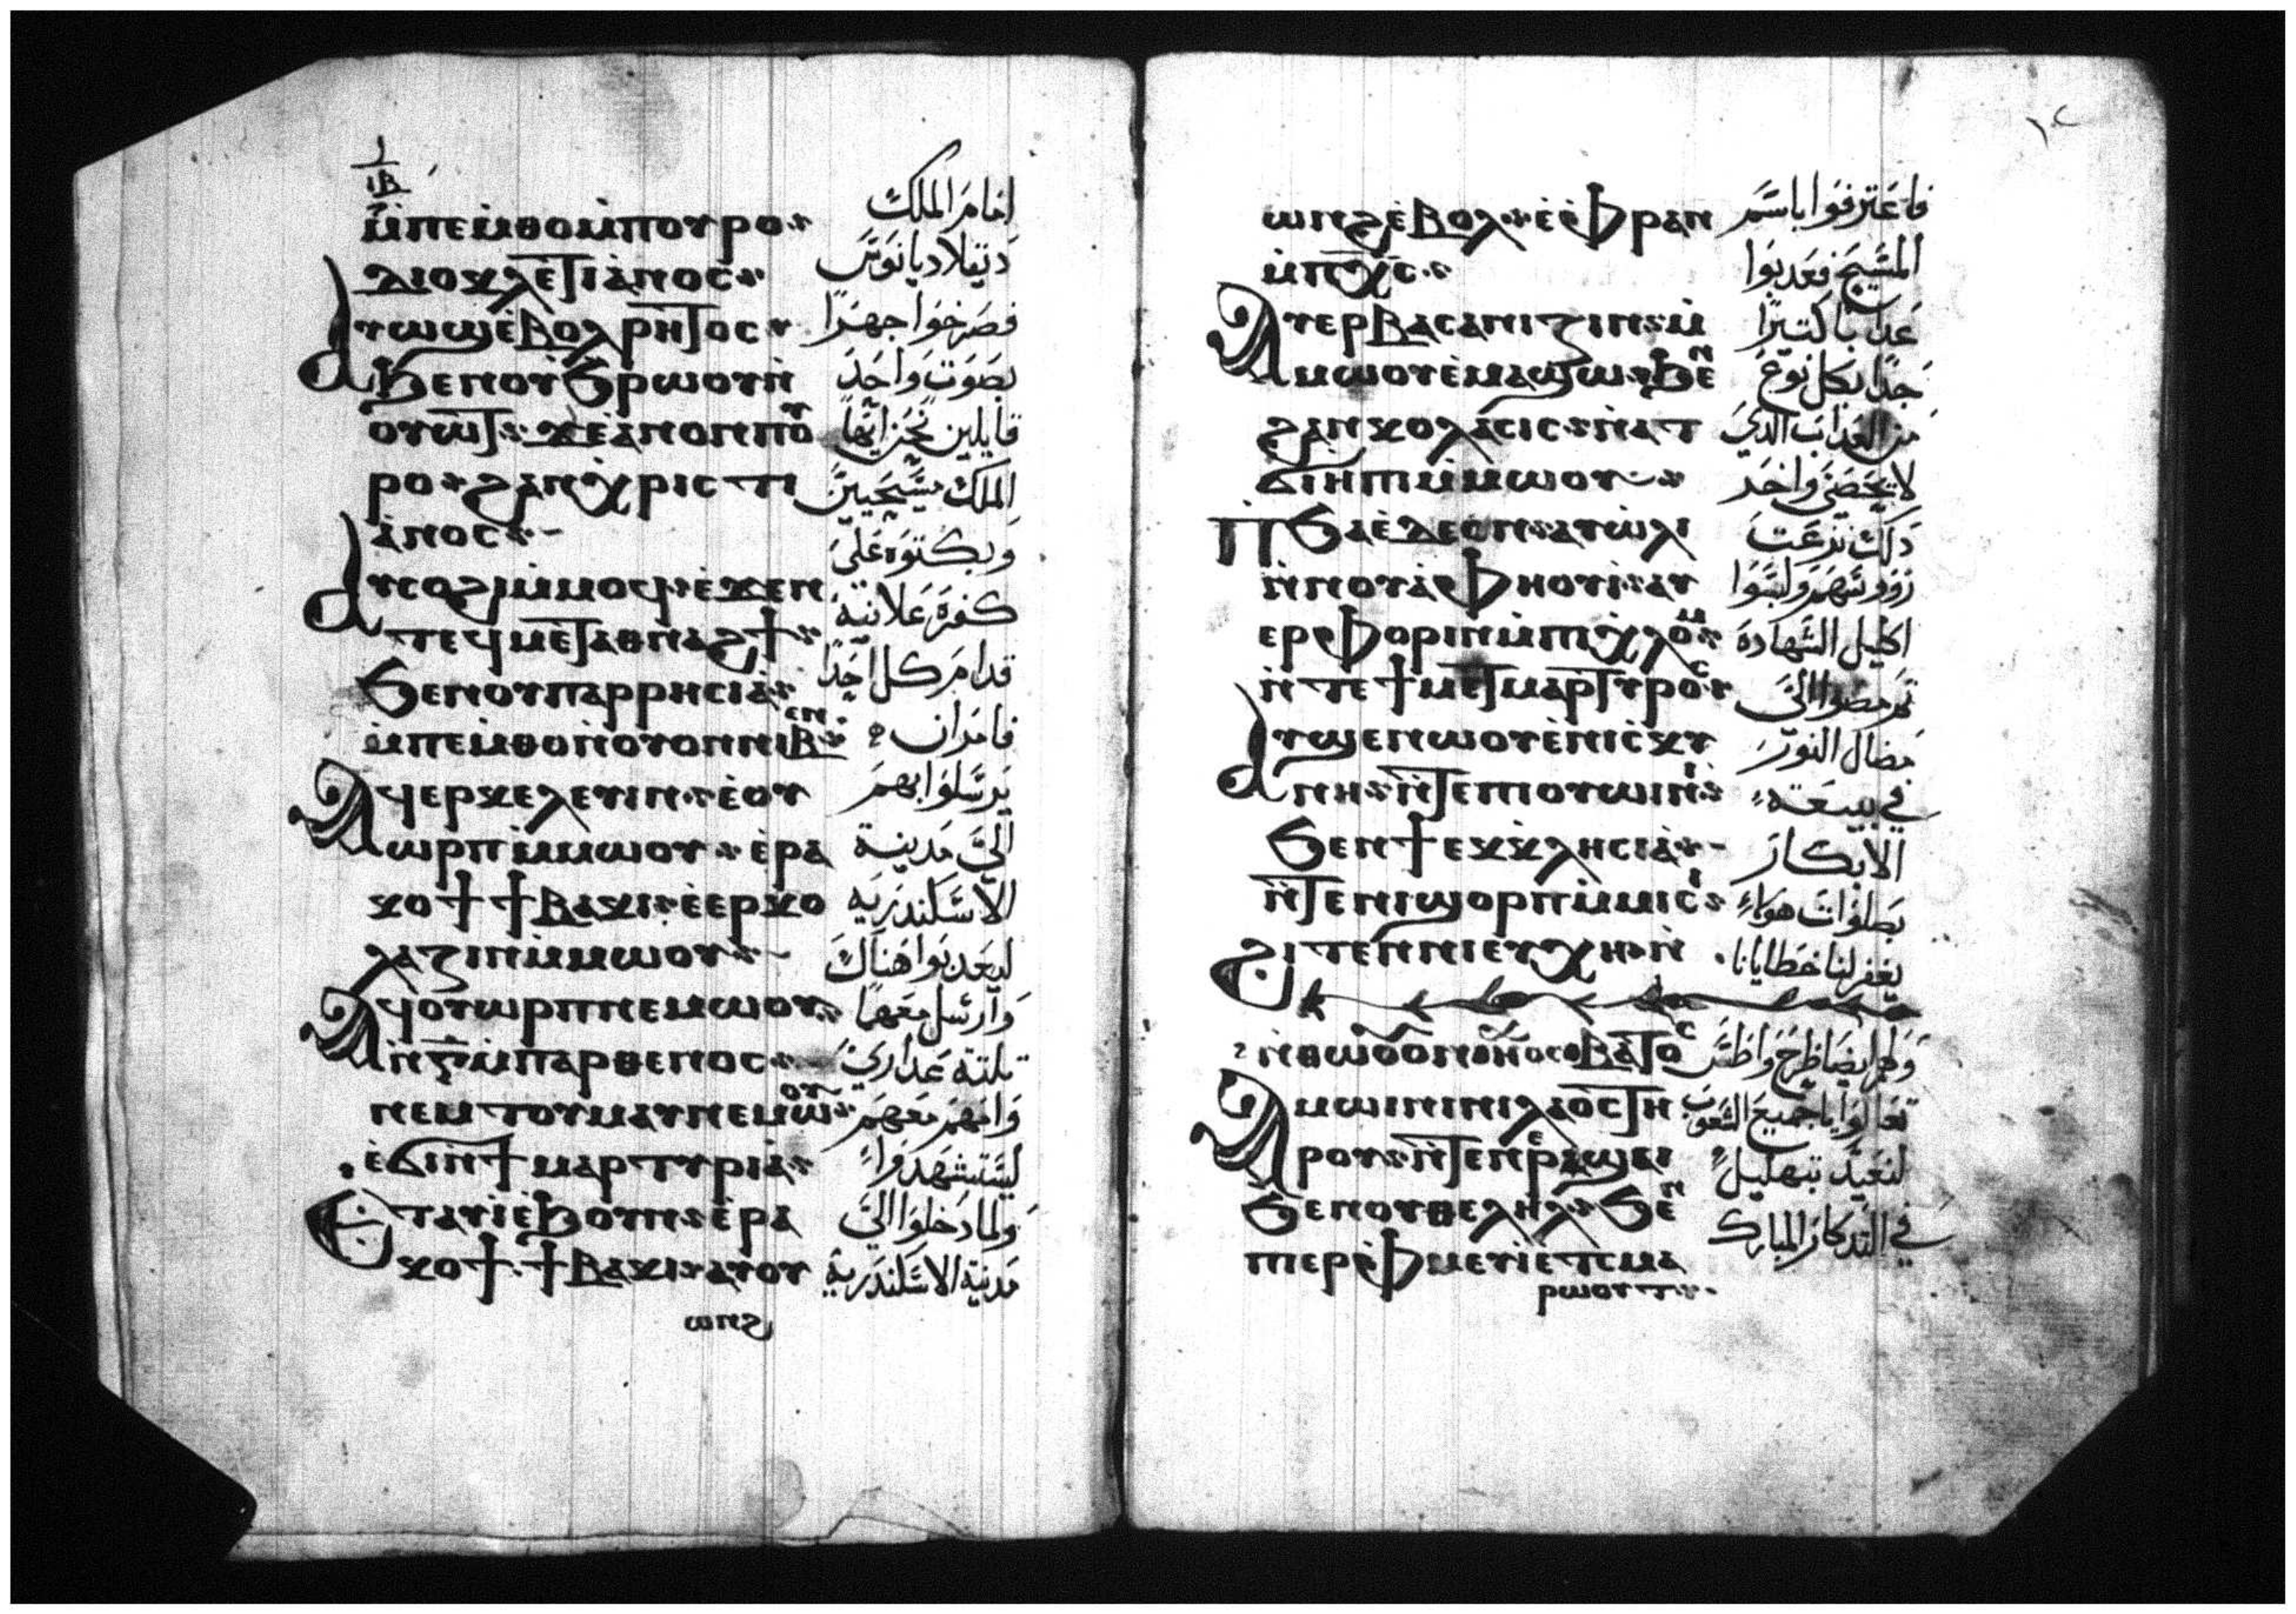 ⲓⲃ
ⲙ̀ⲡⲉⲙⲑⲟ ⲙ̀ⲡⲟⲩⲣⲟ
امام الملك
ⲇⲓⲟⲕⲗⲉϯⲓⲁⲛⲟⲥ
ديقلاديانوس
ⲁⲩⲱϣ ⲉ̀ⲃⲟⲗ ⲣⲏⲧⲟⲥ
فصرخوا جهرًا
ϧⲉⲛ ⲟⲩϧⲣⲱⲟⲩ ⲛ̀
بصوت واحد
ⲟⲩⲱⲧ ϫⲉ ⲁⲛⲟⲛ ⲡⲟⲩ
قايلين نحن ايها
ⲣⲟ ϩⲁⲛⲭⲣⲓⲥⲧⲓ
الملك مسيحيين
ⲁⲛⲟⲥ
ⲁⲩⲥⲟϩⲓ ⲙ̀ⲙⲟϥ ⲉ̀ϫⲉⲛ
وبكتوه على
ⲧⲉϥⲙⲉⲧⲁⲑⲛⲁϩϯ
كفره علانية
ϧⲉⲛ ⲟⲩⲡⲁⲣⲣⲏⲥⲓⲁ
قدام كل احدًا
ⲙ̀ⲡⲉⲙⲑⲟ ⲛ̀ⲟⲩⲟⲛ ⲛⲓⲃⲉⲛ
فامر ان
ⲁϥⲉⲣⲕⲉⲗⲉⲩⲓⲛ ⲉ̀ⲟⲩ
يرسلوا بهم
ⲱⲣⲡ ⲙ̀ⲙⲱⲟⲩ ⲉ̀ⲣⲁ
الى مدينة
ⲕⲟϯ ϯⲃⲁⲕⲓ ⲉ̀ⲉⲣⲕⲟ
الاسكندريه
ⲗⲁⲍⲓⲛ ⲙ̀ⲙⲱⲟⲩ
ليعدبوا هناك
ⲁϥⲟⲩⲱⲣⲡ ⲛⲉⲙⲱⲟⲩ
وارسل معهما
ⲛ̀ⲅ̅ ⲙ̀ⲡⲁⲣⲑⲉⲛⲟⲥ
تلتة عدارى
ⲛⲉⲙ ⲧⲟⲩⲙⲁⲩ ⲛⲉⲙⲱⲟⲩ
وامهم معهم
ⲉ̀ϭⲓ ⲛ̀ϯⲙⲁⲣⲧⲩⲣⲓⲁ
ليستشهدوا
ⲉⲧⲁⲩⲓ̀ ⲉ̀ϧⲟⲩⲛ ⲉ̀ⲣⲁ
ولما دخلوا الى
ⲕⲟϯ ϯⲃⲁⲕⲓ ⲁⲩⲟⲩ
مدينة الاسكندرية
ⲱⲛϩ
١٢
ⲱⲛϩ ⲉ̀ⲃⲟⲗ ⲉ̀ⲫⲣⲁⲛ
فاعترفوا باسم
ⲙ̀ⲡⲭⲥ
المسيح فعدبوا
ⲁⲩⲉⲣⲃⲁⲥⲁⲛⲓⲍⲓⲛ ⲙ̀
عدابًا كتيرًا
ⲙⲱⲟⲩ ⲉ̀ⲙⲁϣⲱ ϧⲉⲛ
جدًا بكل نوع
ϩⲁⲛⲕⲟⲗⲁⲥⲓⲥ ⲛ̀ⲁⲧ
من العداب الدي
ϭⲓⲏⲡⲓ ⲙ̀ⲙⲱⲟⲩ
لا يحصى واخد
ⲡϧⲁⲉ̀ ⲇⲉⲟⲛ ⲁⲩⲱⲗⲓ
دلك نزعت
ⲛ̀ⲛⲟⲩⲁ̀ⲫⲏⲟⲩⲓ̀ ⲁⲩ
روؤسهم ولبسوا
ⲉⲣⲫⲟⲣⲓⲛ ⲙ̀ⲡⲓⲭⲗⲟⲙ
اكليل الشهادة
ⲛ̀ⲧⲉ ϯⲙⲉⲧⲙⲁⲣⲧⲩⲣⲟⲥ
تم مضوا الى
ⲁⲩϣⲉⲛⲱⲟⲩ ⲉ̀ⲛⲓⲥⲕⲩ
مضال النور
ⲛⲏ ⲛ̀ⲧⲉ ⲡⲓⲟⲩⲱⲓⲛⲓ
في بيعة
ϧⲉⲛ ϯⲉⲕⲕⲗⲏⲥⲓⲁ
الابكار
ⲛ̀ⲧⲉ ⲛⲓϣⲟⲣⲡ ⲙ̀ⲙⲓⲥⲓ
بصلوات هواء
ϩⲓⲧⲉⲛ ⲛⲓⲉⲩⲭⲏ ⲛ̀
يغفر لنا خطايانا
ⲛ̀ⲑⲱⲟⲩ ⲟⲛ ⲏⲭⲟⲥ ⲃⲁⲧⲟⲥ
ولهم ايضا طرح واطس
ⲁⲙⲱⲓⲛⲓ ⲛⲓⲗⲁⲟⲥ ⲧⲏ
تعالوا يا جميع الشعوب
ⲣⲟⲩ ⲛ̀ⲧⲉⲛⲉⲣϣⲁⲓ
لنعيد بتهليل
ϧⲉⲛ ⲟⲩⲑⲉⲗⲏⲗ ϧⲉⲛ
في التدكار المبارك
ⲡⲓⲉⲣⲫⲙⲉⲩⲓ̀ ⲉⲧⲥⲙⲁ
ⲣⲱⲟⲩⲧ